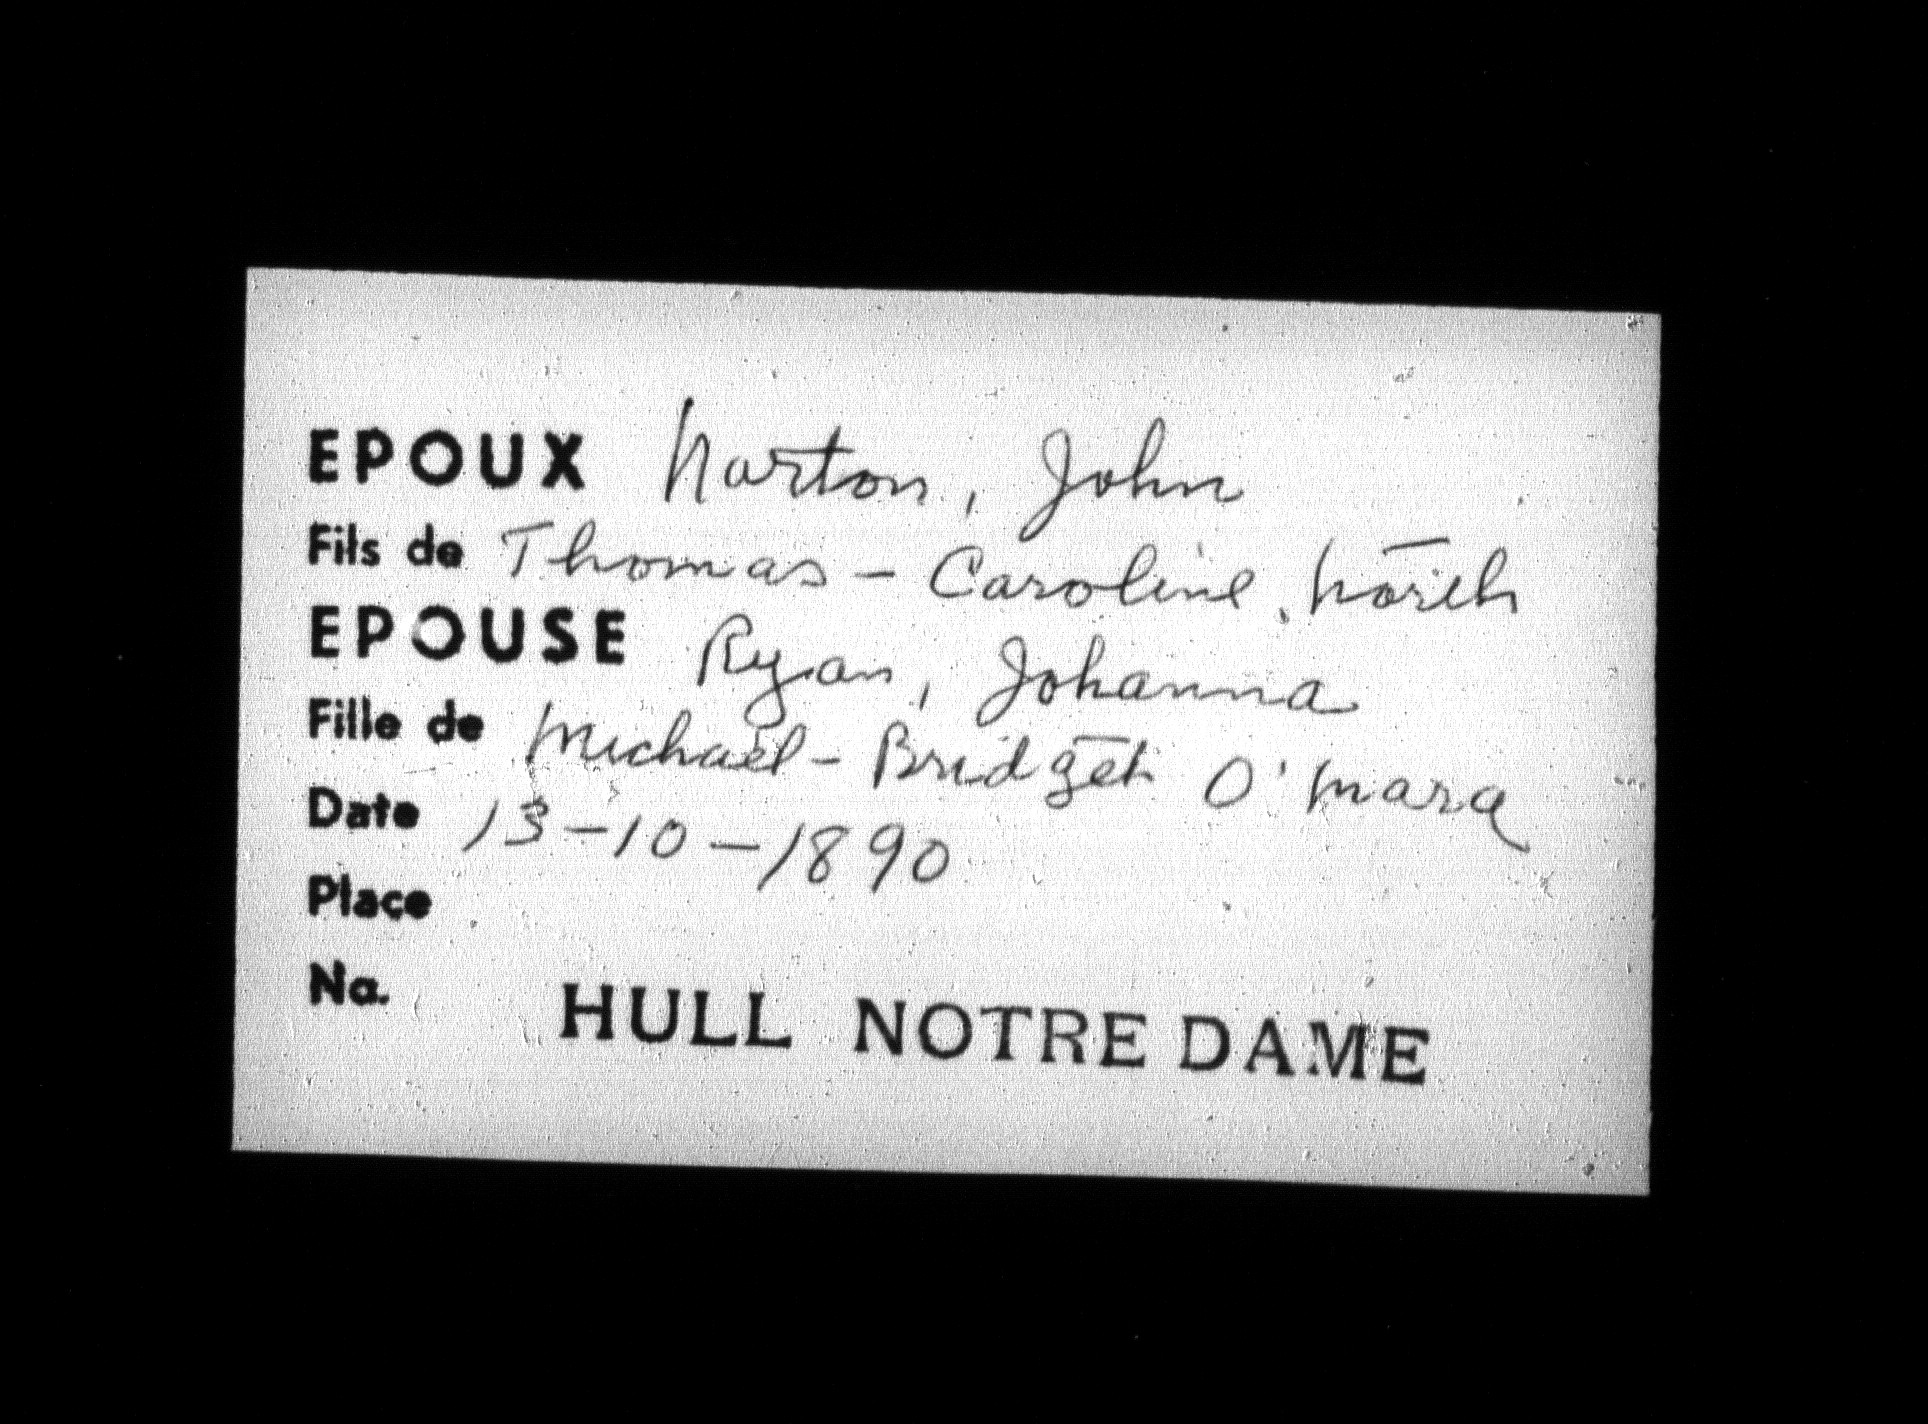 EPOUX Narton, John
Fils de Thomas - Caroline North
EPOUSE Ryan, Johanna
Fille de Michael - Bridget O'Mara
Date 13-10-1890
Place
No.
HULL NOTRE DAME